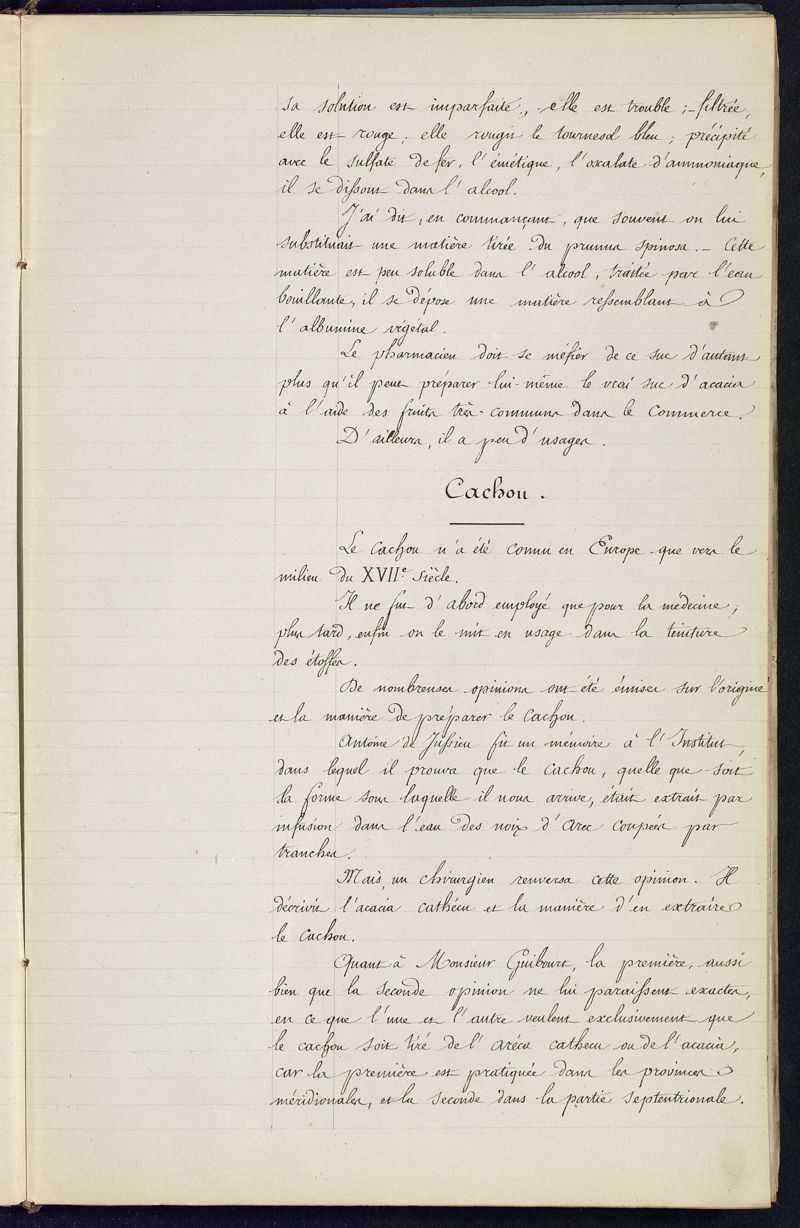 sa solution est imparfaite, elle est trouble ; - filtrée,
elle est rouge, elle rougit le tournesol bleu ; précipité
avec le sulfate de fer, l'émétique, l'oxalate d'ammoniaque,
il se dissout dans l'alcool.
J'ai dit, en commançant, que souvent on lui
substituait une matière tirée du prunus spinosa. - Cette
matière est peu soluble dans l'alcool, traitée par l'eau
bouillante, il se dépose une matière ressemblant à
l'albumine végétal.
Le pharmacien doit se méfier de ce suc d'autant
plus qu'il peut préparer lui-même le vrai suc d'acacia
à l'aide des fruits très-communs dans le commerce.
D'ailleurs, il a peu d'usages.
Cachou.
Le cachou n'a été connu en Europe que vers le
milieu du XVIIe siècle.
Il ne fut d'abord employé que pour la médecine ;
plus tard, enfin on le mit en usage dans la teinture
des étoffes.
De nombreuses opinions ont été émises sur l'origine
et la manière de préparer le cachou.
Antoine de Jussieu fit un mémoire à l'Institut,
dans lequel il prouva que le cachou, quelle que soit
la forme sous laquelle il nous arrive, était extrait par
infusion dans l'eau des noix d'arec coupées par
tranches.
Mais, un chirurgien renversa cette opinion. Il
décrivit l'acacia cathécu et la manière d'en extraire
le cachou.
Quant à Monsieur Guibourt, la première, aussi
bien que la seconde opinion ne lui paraissent exactes,
en ce que l'une et l'autre veulent exclusivement que
le cachou soit tiré de l'aréca cathecu ou de l'acacia,
car la première est pratiquée dans les provinces
méridionales, et la seconde dans la partie septentrionale.